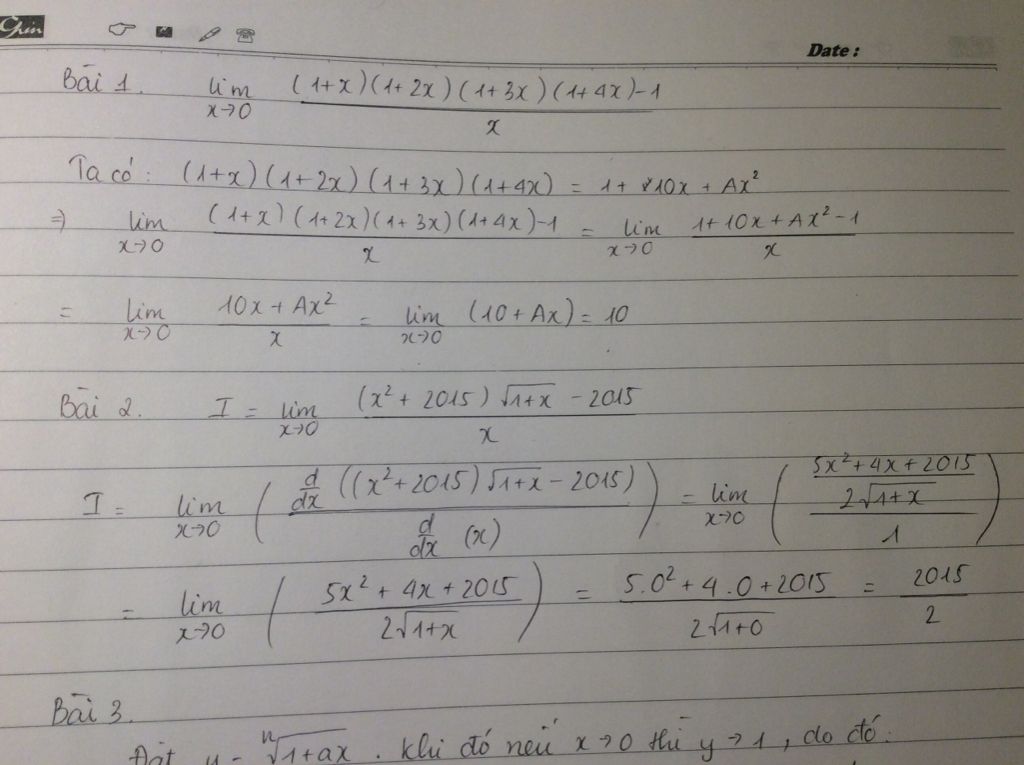 Date :
Bài 1. lim x→0 ((1+x)(1+2x)(1+3x)(1+4x)-1)/x
Ta có: (1+x)(1+2x)(1+3x)(1+4x) = 1+ 10x + Ax²
⇒ lim x→0 ((1+x)(1+2x)(1+3x)(1+4x)-1)/x = lim x→0 (1+10x+Ax²-1)/x
= lim x→0 (10x + Ax²)/x = lim x→0 (10 + Ax) = 10
Bài 2. I = lim x→0 ((x² + 2015)√(1+x) - 2015)/x
I = lim x→0 ( (d/dx ((x²+2015)√(1+x) - 2015)) / (d/dx (x)) ) = lim x→0 ( ((5x²+4x+2015)/(2√(1+x)))/1 )
= lim x→0 ( (5x² + 4x + 2015)/(2√(1+x)) ) = (5.0² + 4.0 + 2015)/(2√(1+0)) = 2015/2
Bài 3.
Đặt y = ⁿ√(1+ax) . Khi đó nếu x→0 thì y→1, do đó: